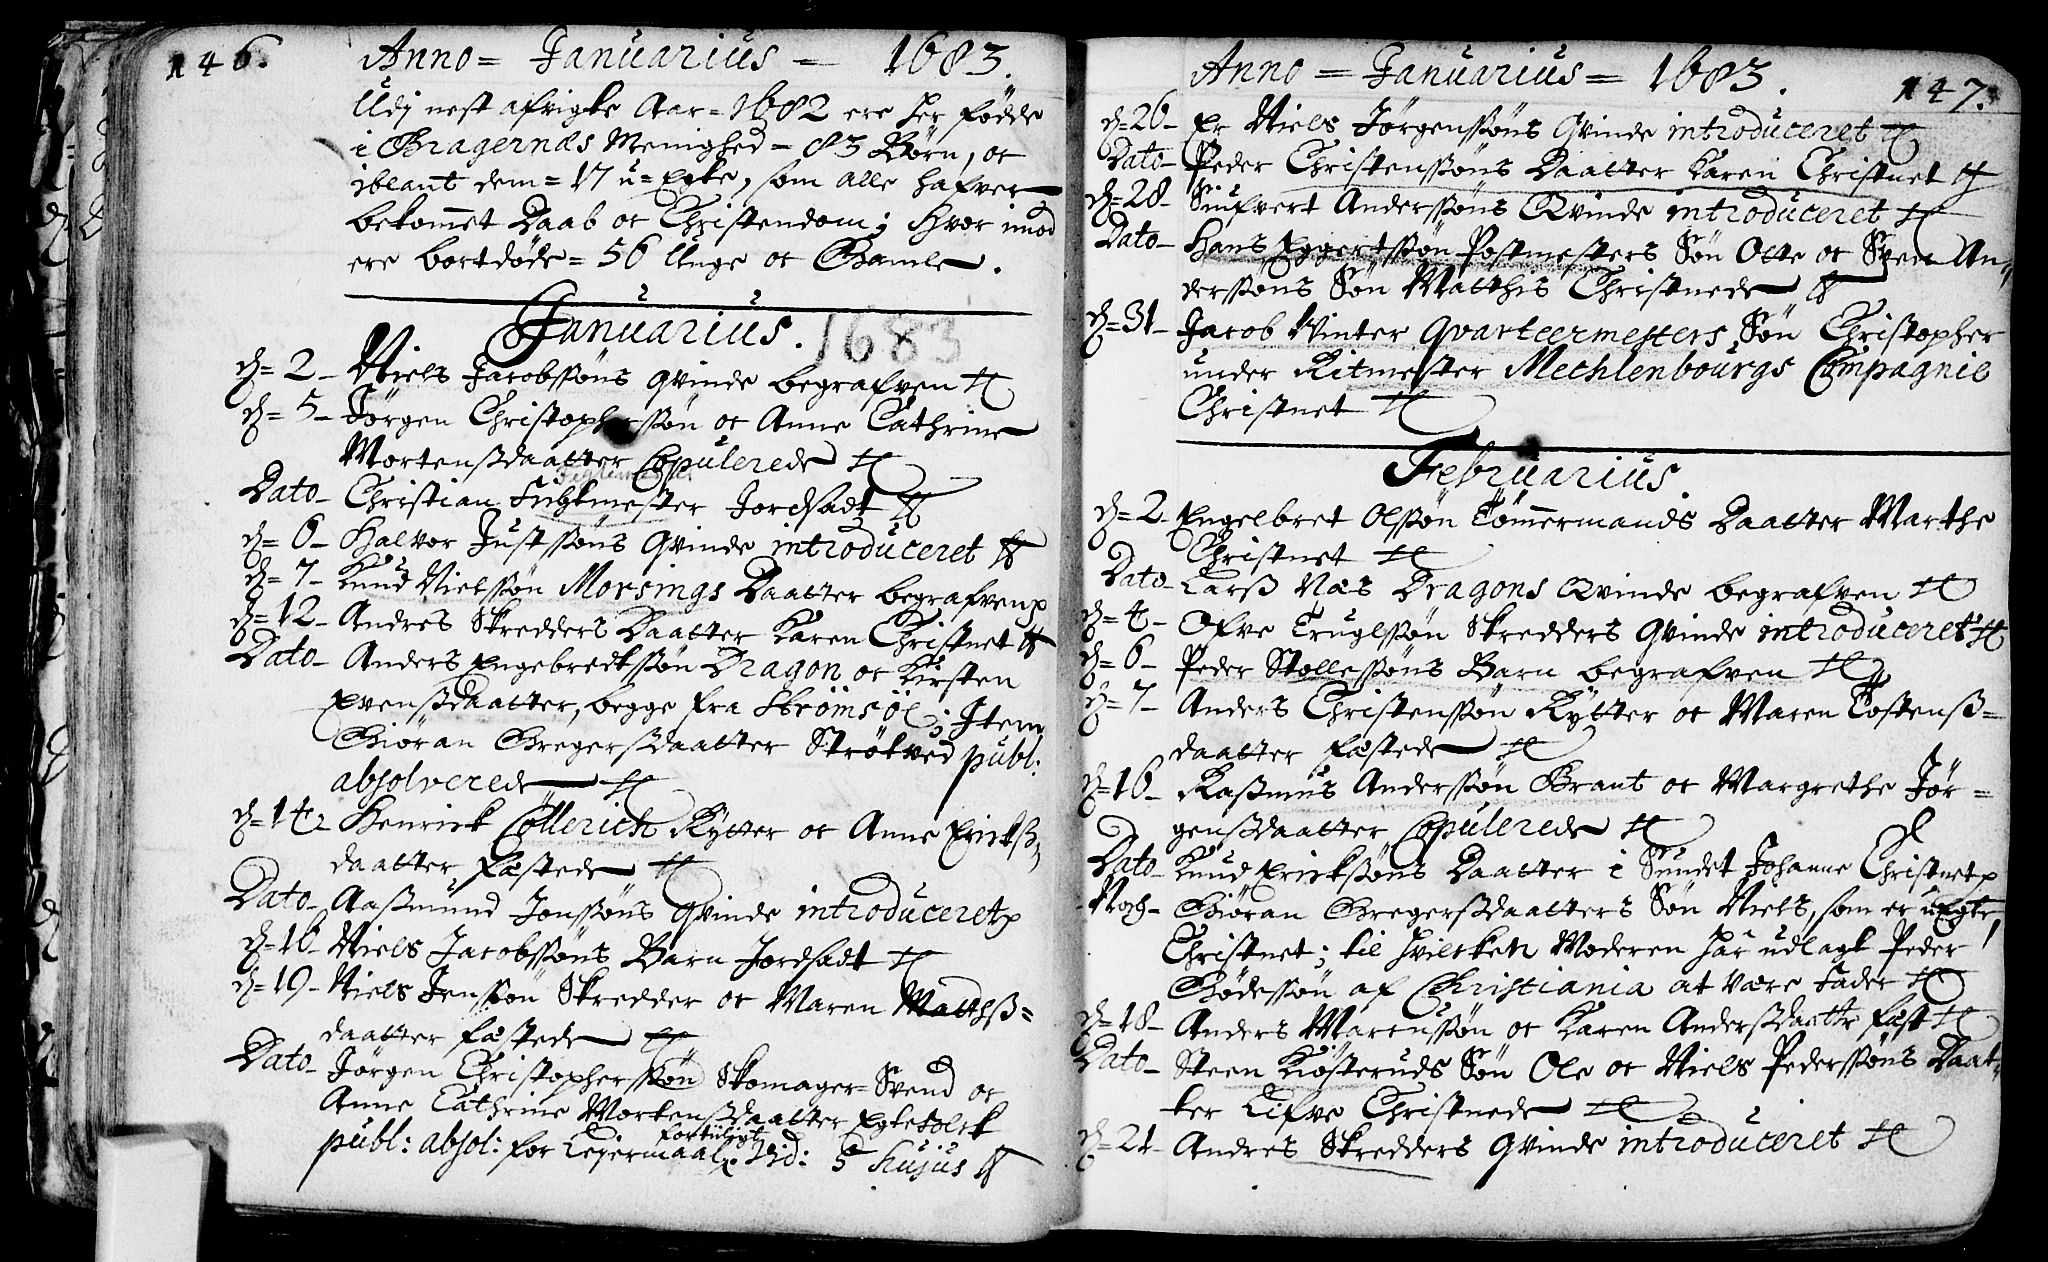 146. Anno = Januarius — 1683.
Udj nest afvigte Aar = 1682 ere her fødde
i Bragernæs Menighed — 83 Børn, oc
iblant dem = 17 u=Egte, som alle hafver
bekommet Daab oc Christendom; Hvor imod
ere bortdøde = 56 Unge oc Gamle.
Januarius. 1683
d = 2 – Niels Jacobssøns Qvinde begrafven
d = 5 – Jørgen Christopherssøn oc Anne Cathrine
Mortensdaatter Copulerede
Dato – Christian Jordsadt
d = 6 – Halvor Justssøns Qvinde introduceret
d = 7 – Knud Nielssøn Morsings Daatter begrafven
d = 12 – Andres Skredders Daatter Karen Christnet
Dato – Anders Engebredtssøn Dragon oc Kirsten
Evenssdaatter, begge fra Strømsøe; Item
Giøran Gregerssdaatter Strøtved publ:
absolverede
d = 14 – Henrick Collerich Rytter oc Anne Erickss
daatter fæstede
Dato – Aassmund Jonssøns Qvinde introduceret
d = 16 – Niels Jacobssøns Barn Jordsadt
d = 19 – Niels Jenssøn Skredder oc Maren Mathss=
daatter fæstede
Dato – Jørgen Christopherssøn Skomager = Svend oc
Anne Cathrine Mortenssdaatter Egtefolck
publ: absol: for Lejermaal. fortiiligt Vid: 5 hujus
Anno = Januarius = 1683. 147.
d = 26 – Er Niels Jørgenssøns Qvinde introduceret
Dato – Peder Christenssøns Daatter Karen Christnet
d = 28 – Siufvert Anderssøns Qvinde introduceret
Dato – Hans Eggertssøn Postmesters Søn Otte oc Sven An=
derssøns Søn Matthis Christnede
d = 31 – Jacob Winter Qvarteermesters Søn Christopher
under Ritmester Mechlenbourgs Compagnie
Christnet
Februarius.
d = 2 – Engelbret Olssøn Tømmermands Daatter Marthe
Christnet
Dato – Larss Næs Dragons Qvinde begrafven
d = 4 – Ofve Truglssøn Skredders Qvinde introduceret
d = 6 – Peder Stollessøns Barn begrafven
d = 7 – Anders Christenssøn Rytter oc Maren Tostenss=
daatter fæstede
d = 16 – Rassmus Anderssøn Brant oc Margrethe Jør=
genssdaatter Copulerede
Dato – Knud Erickssøns Daatter i Sundet Johanne Christnet
Noch – Giøran Gregerssdaatters Søn Niels, som er uEgte,
Christnet; til hvilcken Moderen har udlagt Peder
Bødessøn af Christiania at være Fader
d = 18 – Anders Martenssøn oc Karen Anderssdaattr fæst
Dato – Steen Kiøsteruds Søn Ole oc Niels Pederssøns Daat=
ter Lifve Christnede
d = 21 – Andres Skredders Qvinde introduceret